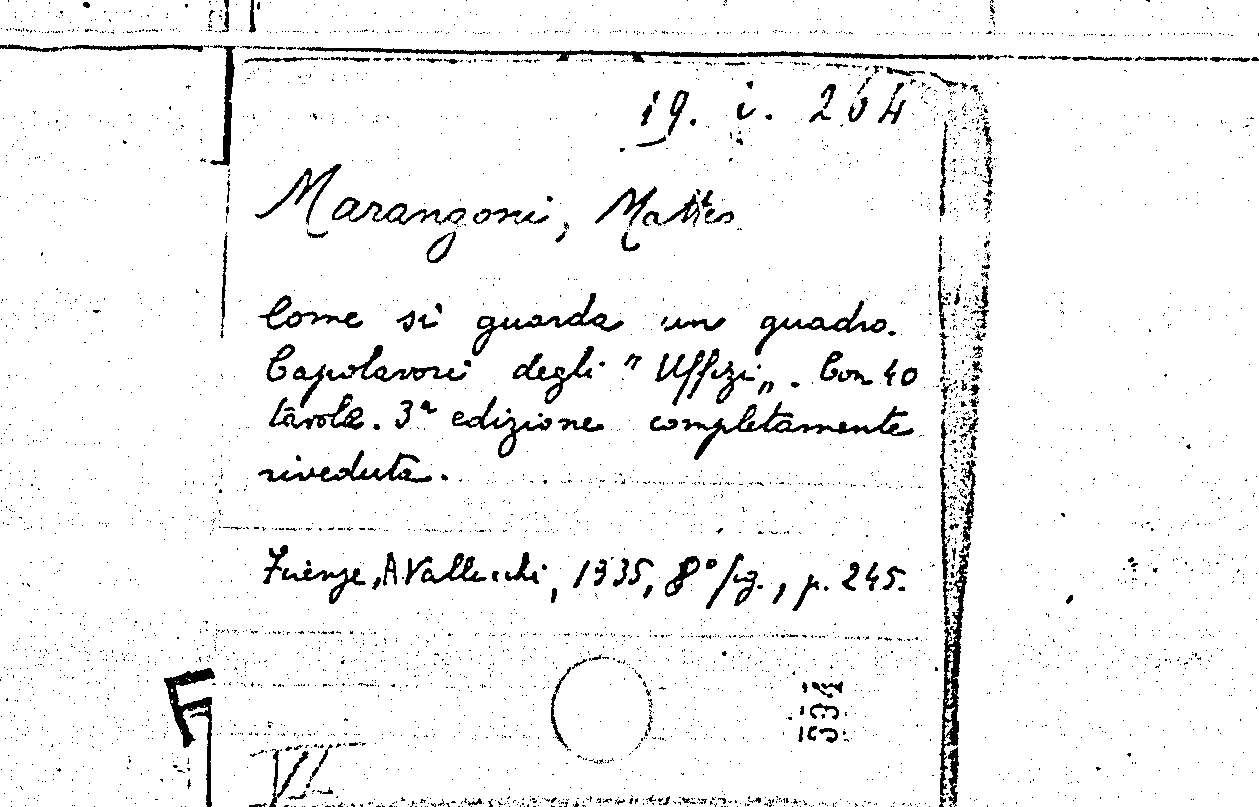 19. i. 264
Marangoni, Matteo
Come si guarda un quadro.
Capolavori degli "Uffizi„. Con 40
tavole. 3ª edizione completamente
riveduta.
Firenze, A Vallecchi, 1935, 8° fig., p. 245.
534
VI